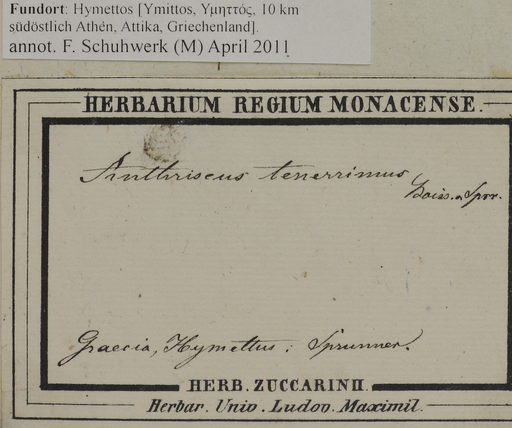 Fundort: Hymettos [Ymittos, Υμηττός, 10 km
südöstlich Athén, Attika, Griechenland].
annot. F. Schuhwerk (M) April 2011
HERBARIUM REGIUM MONACENSE.
Anthriscus tenerrimus
Boiss. & Spr.
Graecia, Hymettus; Sprunner.
HERB. ZUCCARINII.
Herbar. Univ. Ludov. Maximil.